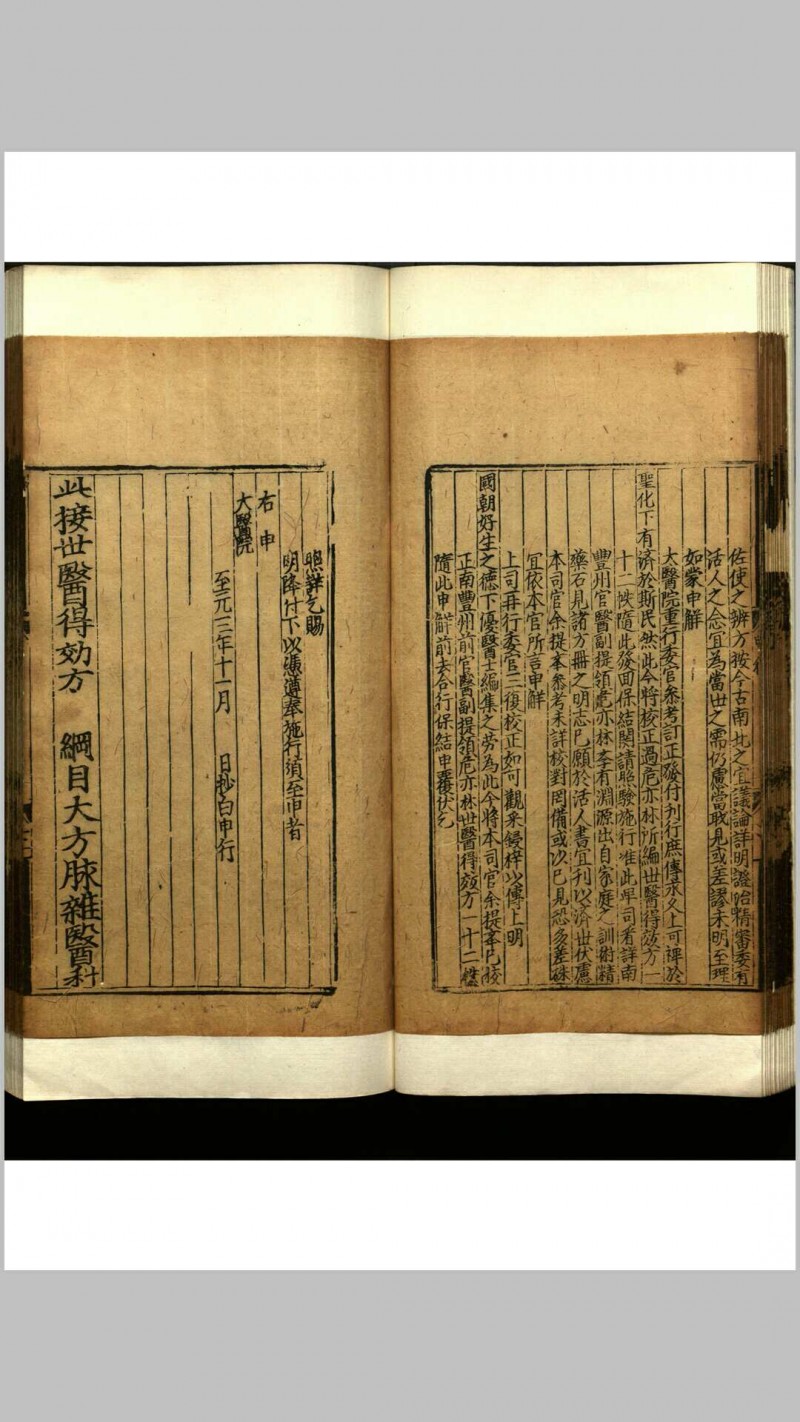 佐使之辨方按今古南北之宜議論詳明證治精審委有
活人之念宜為當世之需仍慮當政見或差謬未明至理
如蒙申觧
大醫院重行委官叅考訂正發付刋行庶傳永久上可裨於
聖化下有濟於斯民然此今將校正過危亦林所編世醫得效方一
十二帙隨此發回保結関請照驗施行准此卑司看詳南
豐州官醫副提領危亦林李有淵源出自家庭之訓術精
藥石見諸方冊之明志已願於活人書宜刋以濟世伏慮
本司官余提李叅考未詳校對罔備或以已見恐多差殊
宜依本官所言申觧
上司再行委官三復校正如可觀采鋟梓以傳上明
國朝好生之德下優醫士編集之劳為此今將本司官余提李已校
正南豐州前官醫副提領危亦林世醫得效方一十二帙
隨此申觧前去合行保結申覆伏乞
照詳乞賜
明降付下以憑遵奉施行須至申者
右申
大醫院
至元三年十一月 日抄白申行
此接世醫得効方 綱目大方脉雜醫科